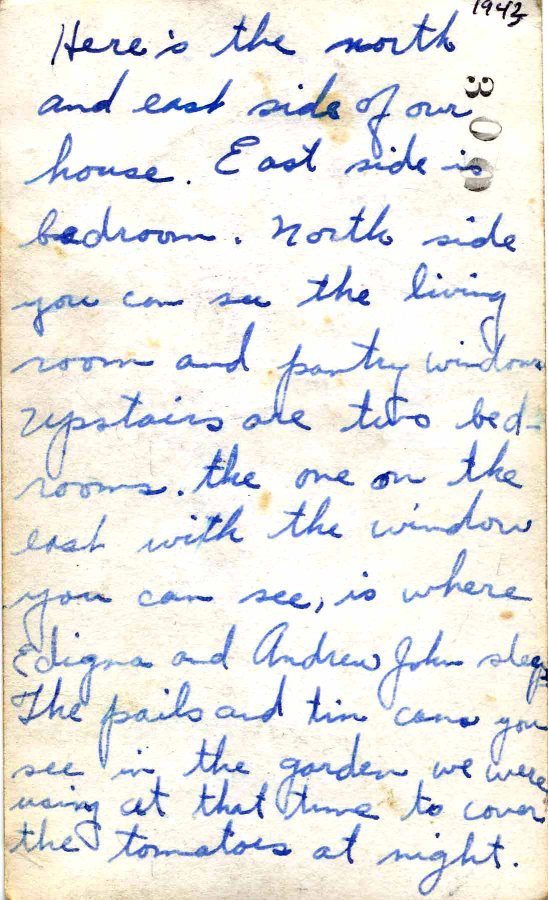 1943
Here's the north
and east side of our
300
house. East side is
bedroom. North side
you can see the living
room and pantry windows
Upstairs are two bed-
rooms. the one on the
east with the window
you can see, is where
Edigna and Andrew John sleep
The pails and tin cans you
see in the garden we were
using at that time to cover
the tomatoes at night.